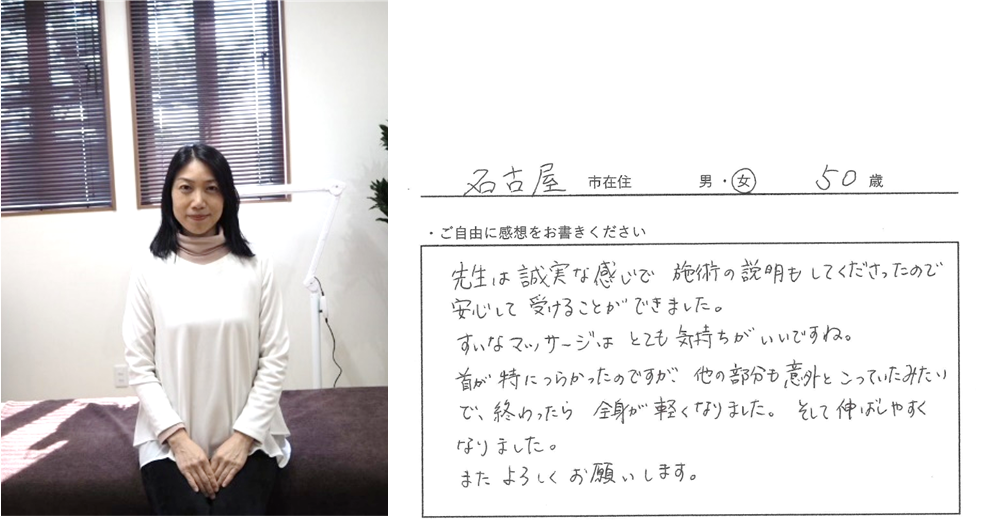 名古屋 市在住 男・女 50 歳
・ご自由に感想をお書きください
先生は誠実な感じで 施術の説明もしてくださったので
安心して受けることができました。
すいなマッサージは とても気持ちがいいですね。
首が特につらかったのですが、他の部分も意外とこっていたみたい
で、終わったら 全身が軽くなりました。そして伸ばしやすく
なりました。
また よろしく お願いします。